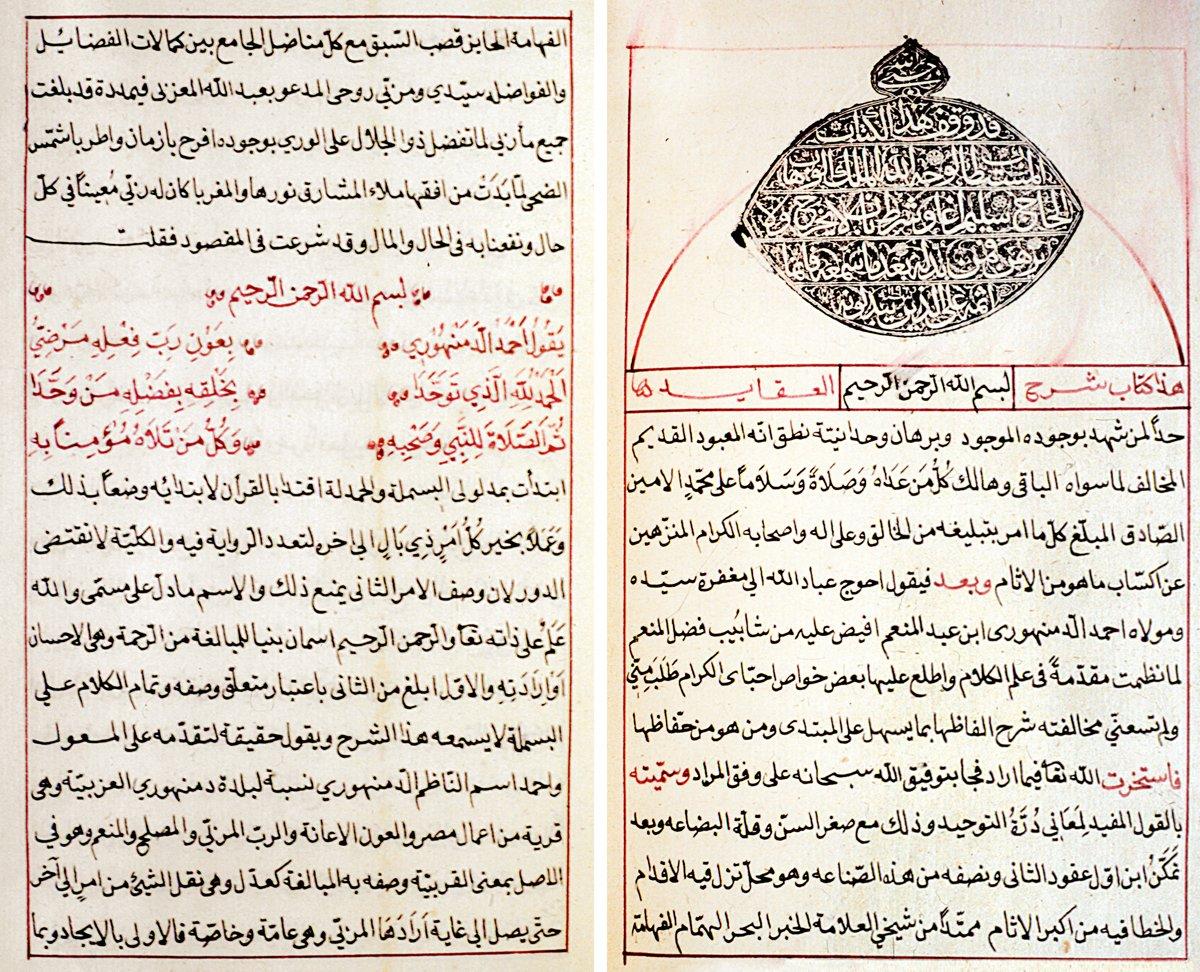 قد وقف هذا الكتاب
الحاج سليم اغا وشرط ان لا يخرج ولا
يرهن فمن بدله بعد ما سمعه فانما
اثمه على الذين يبدلونه
هذا كتاب شرح بسم الله الرحمن الرحيم العقايد
حمدًا لمن شهد بوجوده الموجود وبرهان وحدانيته نطق انه المعبود القديم
المخالف لما سواه الباقى وهالك كُلُّ مَن عَدَاهُ وَصَلَاةً وَسَلَامًا على محمّدٍ الامين
الصّادق المبلّغ كلّ ما امر بتبليغه من الخالق وعلى اله واصحابه الكرام المنزّهين
عن اكتساب ما هو من الاثام وبعد فيقول احوج عباد الله الى مغفرة سيّده
ومولاه احمد الدّمنهورى ابن عبد المنعم افيض عليه من شابيب فضل المنعم
لما نظمت مقدّمةً فى علم الكلام واطلع عليها بعض خواص احبّاى الكرام طَلَبَ مِنّي
ولم تسعنى مخالفته شرح الفاظها بما يسهل على المبتدى ومن هو من حفّاظها
فاستخرت الله تعا فيما اراد فجا بتوفيق الله سبحانه على وفق المراد وسمّيته
بالقول المفيد لِمَعَانِي دُرَّةُ التوحيد وذلك مع صغر السنّ وقلّة البضاعه وبعد
تَمَكُّنُ ابن اوّل عقود الثانى ونصفه من هذه الصّناعه وهو محلّ تزل فيه الاقدام
والخطا فيه من اكبر الاثام ممتدًّا من شيخى العلامة الحبر البحر الهمام الفهامة
الفهامة الحايز قصب السّبق مع كلّ مناضل الجامع بين كمالات الفضايل
والفواضل سيّدي ومربّي روحى المدعو بعبد الله المغربى فيمددة قد بلغت
جميع مأربى لما تفضل ذو الجلال على الوري بوجوده افرح يا زمان واطرب يا شمس
الضحى لمّا بَدَتْ من افقها ملاء المشارق نورها والمغربا كان له ربّي مُعينًا في كلّ
حال ونفعنا به فى الحال والمال وقد شرعت فى المقصود فقلت
بسم الله الرّحمن الرّحيم
يَقُولُ أَحْمَدُ الدَّمَنْهُورِي بِعَوْنِ رَبّ فِعْلِهِ مَرْضِيُّ
الحَمْدُ لِلَّهِ الَّذِي تَوَحَّدَا بِخَلْقِهِ بِفَضْلِهِ مَنْ وَحَّدَا
ثُمَّ الصَّلَاةُ لِلنَّبِيِّ وَصَحْبِهِ وَكُلُّ مَنْ تَلَاهُ مُؤْمِنًا بِهِ
ابتدأت بمدلولى البسملة والحمدلة اقتداء بالقرآن لابتدايه وضعاً بذلك
وَعَمَلاً بخبر كُلُّ امْرٍ ذِي بَالٍ الى اخره لتعدد الرّواية فيه والكليّة لا تقتضى
الدور لان وصف الامر الثانى يمنع ذلك والاسم ما دل على مسمّى والله
عَلَمٌ على ذاته تعا والرّحمن الرّحيم اسمان بنيا للمبالغة من الرّحمة وهى الاحسان
اوْ إِرَادَتِهِ والاوّل ابلغ من الثانى باعتبار متعلّق وصفه وتمام الكلام على
البسملة لا يسمعه هذا الشرح ويقول حقيقة لتقدّمه على المعول
واحمد اسم النّاظم الدّمنهوري نسبة لبلدة دمنهوري الغربيّة وهى
قرية من اعمال مصر والعون الاعانة والربّ المربّي والمصلح والمنعم وهو في
الاصل بمعنى القربيّة وصفه به المبالغة كعدل وهى نقل الشيئ من امرٍ الى آخر
حتّى يصل الى غاية اَرَادَهَا المربّي وهى عامّة وخاصّة فالاولى بالايجاد وبما